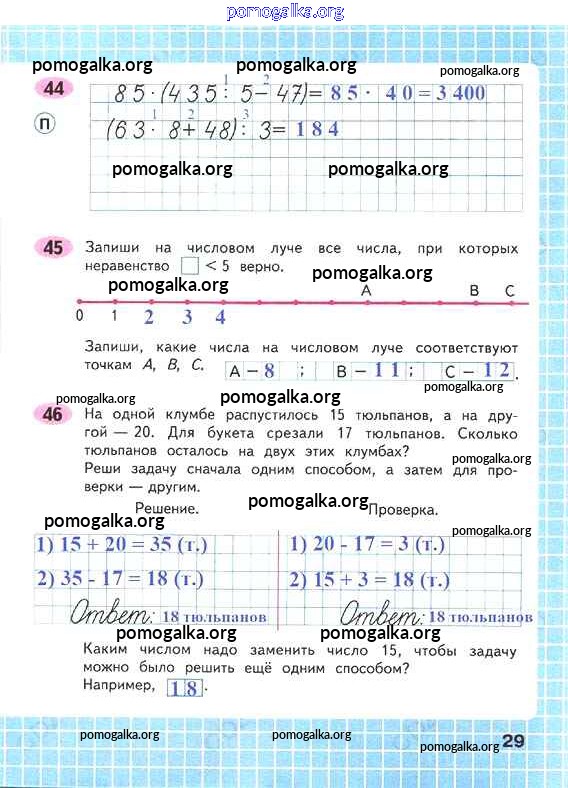 pomogalka.org
pomogalka.org pomogalka.org pomogalka.org
44 85·(435:5-47)=85·40=3400
1 2
П (63·8+48):3=184
1 2 3
pomogalka.org pomogalka.org
pomogalka.org
45 Запиши на числовом луче все числа, при которых
неравенство □ < 5 верно.
pomogalka.org pomogalka.org
А В С
0 1 2 3 4
Запиши, какие числа на числовом луче соответствуют
точкам А, В, С. А – 8 ; В – 11 ; С – 12 .
pomogalka.org pomogalka.org pomogalka.org
46 На одной клумбе распустилось 15 тюльпанов, а на дру-
гой — 20. Для букета срезали 17 тюльпанов. Сколько
тюльпанов осталось на двух этих клумбах?
pomogalka.org
Реши задачу сначала одним способом, а затем для про-
верки — другим.
pomogalka.org
Решение. Проверка.
pomogalka.org pomogalka.org
1) 15 + 20 = 35 (т.) 1) 20 - 17 = 3 (т.)
2) 35 - 17 = 18 (т.) 2) 15 + 3 = 18 (т.)
Ответ: 18 тюльпанов Ответ: 18 тюльпанов
pomogalka.org pomogalka.org
Каким числом надо заменить число 15, чтобы задачу
можно было решить ещё одним способом?
Например, 18 .
pomogalka.org pomogalka.org pomogalka.org
29